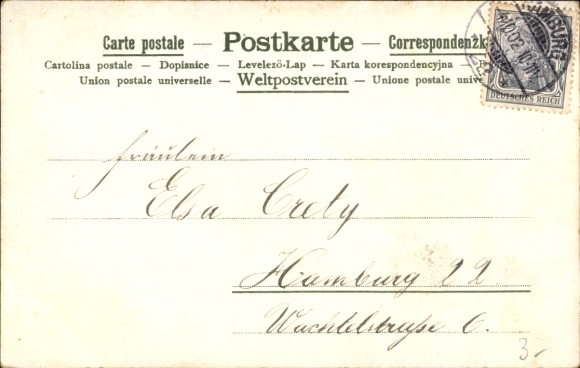 Carte postale — Postkarte — Correspondenzk
Cartolina postale — Dopisnice — Levelezö-Lap — Karta korespondencyjna —
Union postale universelle — Weltpostverein — Unione postale univ
HAMBURG
DEUTSCHES REICH
Fräulein
Elsa Crety
Hamburg 22
Wachtelstraße 6.
3-